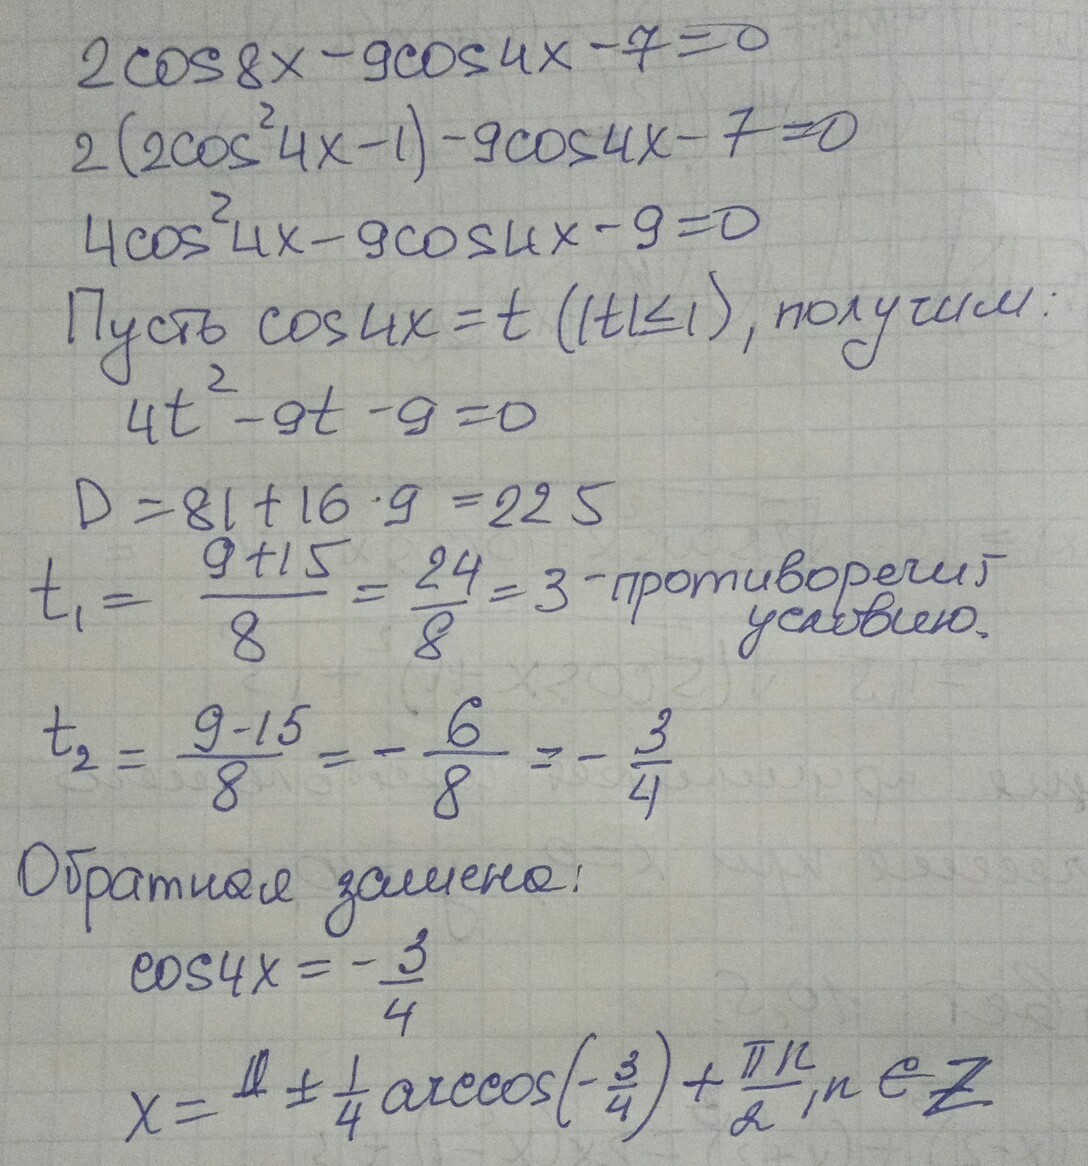 2cos8x - 9cos4x - 7 = 0
2(2cos²4x - 1) - 9cos4x - 7 = 0
4cos²4x - 9cos4x - 9 = 0
Пусть cos4x = t (|t| ≤ 1), получим:
4t² - 9t - 9 = 0
D = 81 + 16 · 9 = 225
t₁ = (9+15)/8 = 24/8 = 3 - противоречит условию.
t₂ = (9-15)/8 = - 6/8 = - 3/4
Обратная замена:
cos4x = - 3/4
x = ± 1/4 arccos(- 3/4) + πn/2, n ∈ Z